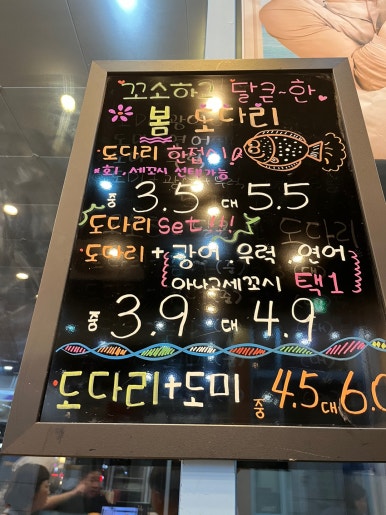 꼬소하고 달큰~한
봄 도다리
도다리 한접시
*회, 세꼬시 선택가능
중 3.5 대 5.5
도다리 set
도다리 + 광어. 우럭. 연어
아나고세꼬시 택1
중 3.9 대 4.9
도다리+도미 중 4.5 대 6.0